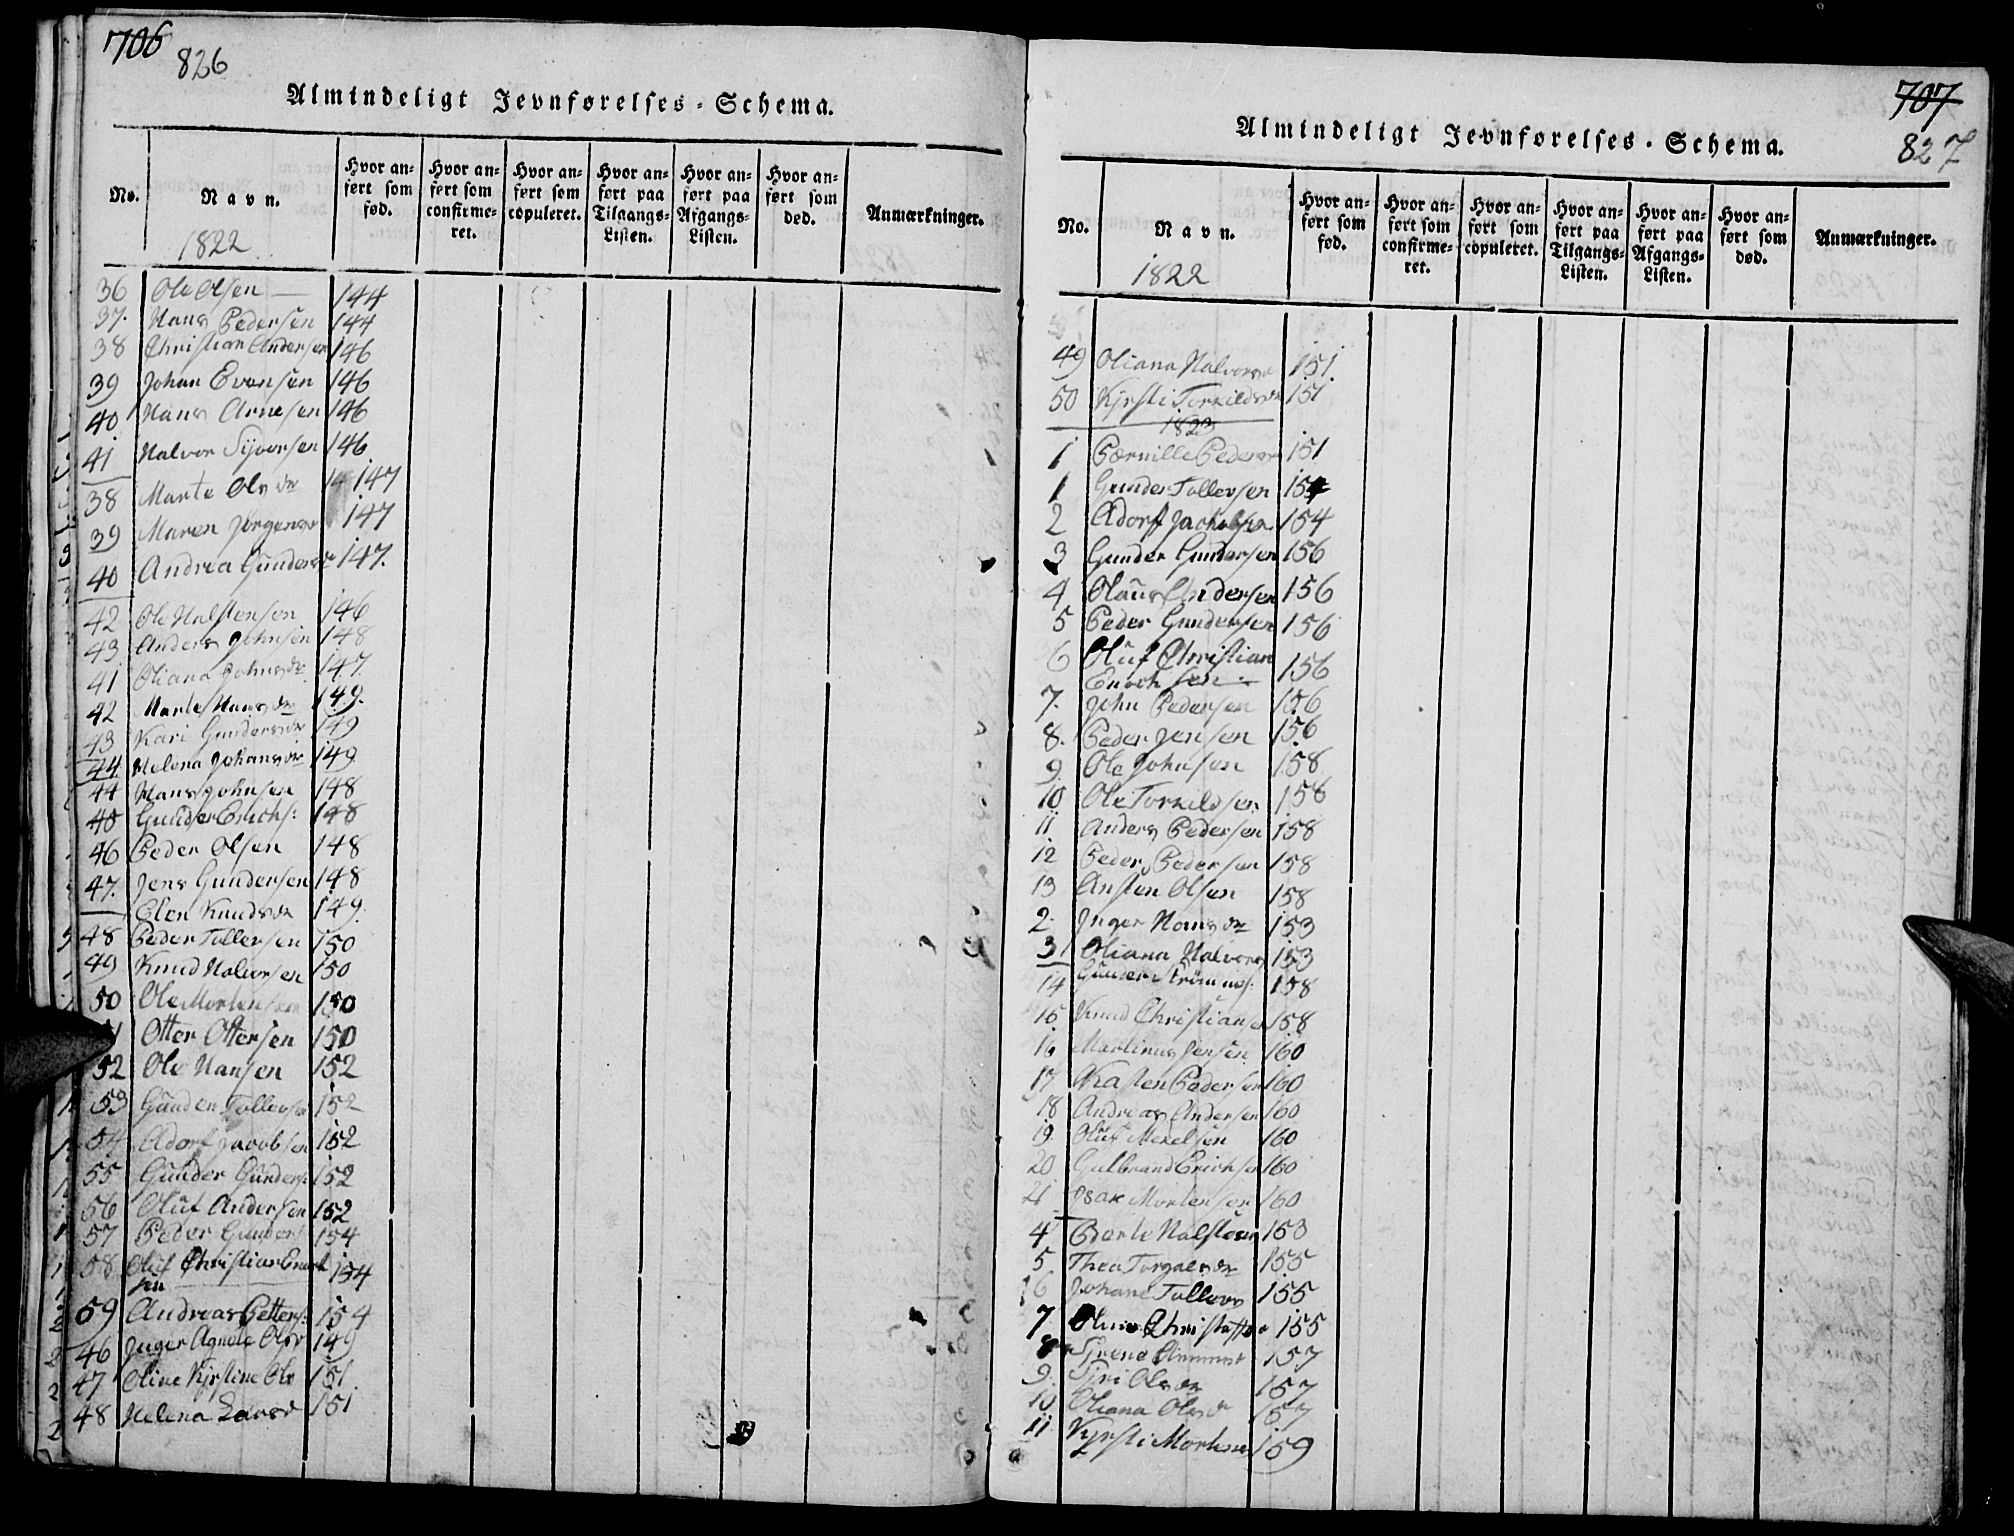 706
826
Almindeligt Jevnførelses-Schema.
No.
Navn.
Hvor anført som fød.
Hvor anført som confirmeret.
Hvor anført som copuleret.
Hvor anført paa Tilgangs-Listen.
Hvor anført paa Afgangs-Listen.
Hvor anført som død.
Anmærkninger.
1822
36 Ole Olsen 144
37. Hans Pedersen 144
38 Christian Andersen 146
39 Johan Evensen 146
40 Hans Arnesen 146
41 Halvor Syversen 146
38 Marte Olsdr 147
39 Maren Jørgensd 147
40 Andrea Gundersdr 147.
42 Ole Halstensen 146
43 Anders Johnsen 148
41 Oliana Johnsdr 147.
42 Marte Hansdr 149.
43 Kari Gundersdr 149
44 Helena Johansdr 149
44 Hans Johnsen 148
Gunder Erichs: 148
46 Peder Olsen 148
47. Jens Gundersen 148
Elen Knudsdr 149.
48 Peder Tollersen 150
49 Knud Halvorsen 150
50 Ole Mortensen 150
Otter Ottersen 150
52 Ole Hansen 152
53 Gunder Tollersen 152
54 Adorf Jacobsen 152
55 Gunder Gunders: 152
56 Oluf Andersen 152
57 Peder Gunders 154
58 Oluf Christian Enoch
sen 154
59 Andreas Petters: 154
46 Inger Agnete Olsd 149
47 Oline Kjrstine Ols 151
48 Helena Larsd 151
707
827
Almindeligt Jevnførelses-Schema.
No.
Navn.
Hvor anført som fød.
Hvor anført som confirmeret.
Hvor anført som copuleret.
Hvor anført paa Tilgangs-Listen.
Hvor anført paa Afgangs-Listen.
Hvor anført som død.
Anmærkninger.
1822
49 Oliana Halvorsd 151
50 Kjrsti Torkildsdr 151
1823
1 Pernille Pedersd 151
1 Gunder Tollevsen 154
2 Adorf Jachobsen 154
3 Gunder Gundersen 156
4 Olaus Andersen 156
5 Peder Gundersen 156
6 Oluf Christian
Enochsen 156
7. John Pedersen 156
8. Peder Jensen 156
9. Ole Johnsen 158
10 Ole Torkildsen 158
11 Anders Pedersen 158
12 Peder Pedersen 158
13 Ansten Olsen 158
2. Inger Hansdr 153
3 Oliana Halvors 153
14 Gunder 158
15 Knud Christiansen 158
16 Martinus Jensen 160
17 Kasten Pedersen 160
18 Andreas Andersen 160
19. Oluf Mekelsen 160
20 Gulbrand Erichsen 160
21 Isak Mortensen 160
4 Berte Halsteen 153
5 Thea Torgalsdr 155
6 Johane Tollevs 155
7 Christoff 155
8 157
9. Siri Olsdr 157
10 Oliana Olsd 157
11 Kjrsti Mortens 159